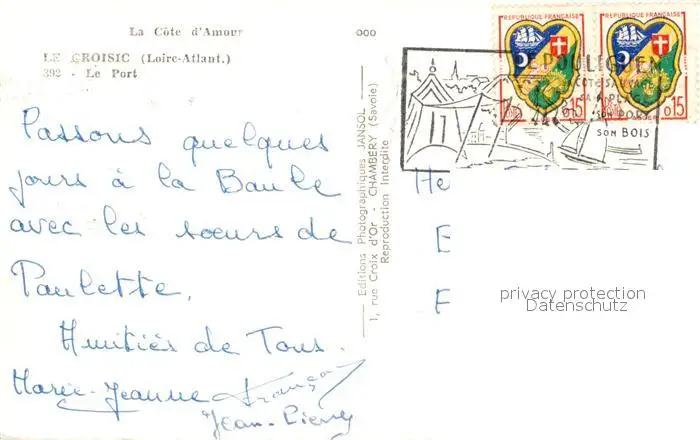 La Côte d'Amour
000
LE CROISIC (Loire-Atlant.)
392 - Le Port
Passons quelques
jours à la Baule
avec les sœurs de
Paulette.
Amitiés de Tous.
Marie-Jeanne François
Jean-Pierre
Editions Photographiques JANSOL
1, rue Croix d'Or - CHAMBÉRY (Savoie)
Reproduction Interdite
REPUBLIQUE FRANÇAISE
REPUBLIQUE FRANÇAISE
0,15
0,15
LE POULIGUEN
SA CÔTE SAUVAGE
SA PLAGE
SON PORT
SON BOIS
He
E
F
privacy protection
Datenschutz